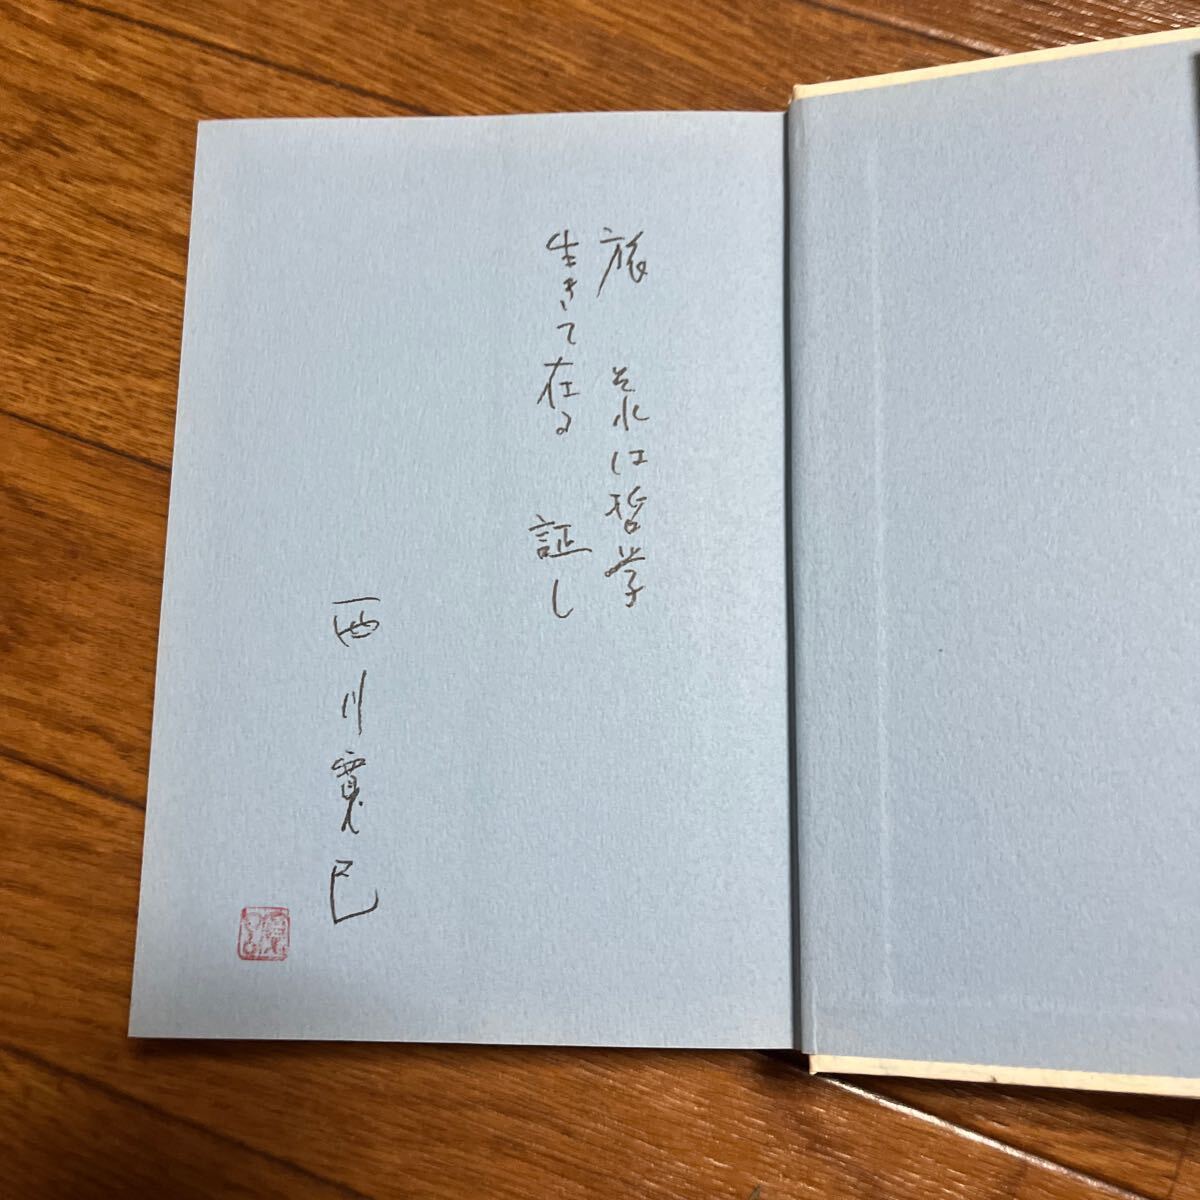 旅 それは哲学
生きて在る 証し
西川寛巳